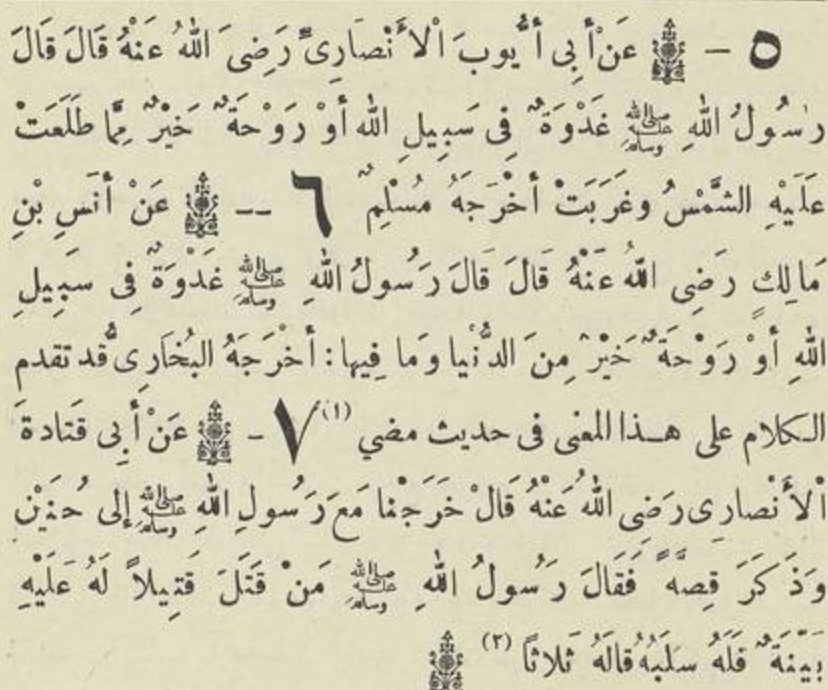 ٥ - عَنْ أَبِى أَيُّوبَ الْأَنْصَارِىِّ رَضِىَ اللهُ عَنْهُ قَالَ قَالَ
رَسُولُ اللهِ ﷺ غَدْوَةٌ فِى سَبِيلِ الله أَوْ رَوْحَةٌ خَيْرٌ مِمَّا طَلَعَتْ
عَلَيْهِ الشَّمْسُ وغَرَبَتْ أَخْرَجَهُ مُسْلِمٌ ٦ -- عَنْ أَنَسِ بْنِ
مَالِكٍ رَضِى اللهُ عَنْهُ قَالَ قَالَ رَسُولُ اللهِ ﷺ غَدْوَةٌ فِى سَبِيلِ
اللهِ أَوْ رَوْحَةٌ خَيْرٌ مِنَ الدُّنْيا وَما فِيها : أَخْرَجَهُ البُخَارِىُّ قد تقدم
الكلام على هذا المعنى فى حديث مضي (١) ٧ - عَنْ أَبِى قَتَادةَ
الْأَنْصارِى رَضِى اللهُ عَنْهُ قَالَ خَرَجْنا مَعَ رَسُولِ اللهِ ﷺ إِلى حُنَيْن
وَذَكَرَ قِصَّةً فَقَالَ رَسُولُ اللهِ ﷺ مَنْ قَتَلَ قَتِيلاً لَهُ عَلَيْهِ
بَيِّنَةٌ فَلَهُ سَلَبُهُ قالَهُ ثَلاثاً (٢)